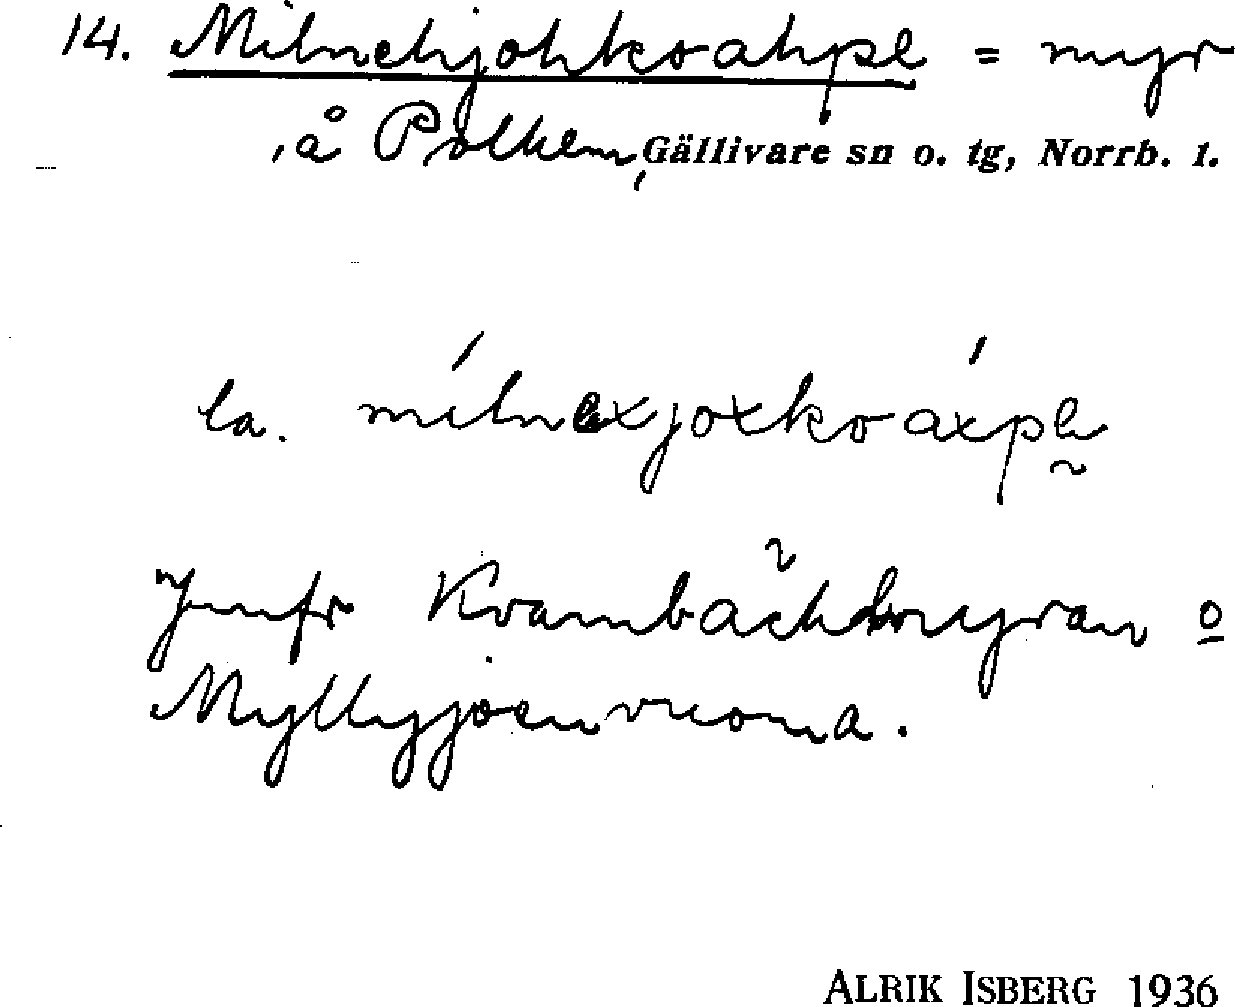 14. Milnehjohkoahpe = myr
å Polkem, Gällivare sn o. tg, Norrb. t.
la. milnexjoxkoaxpe
Jumfr Kvambäckmyran o
Myllyjoenvuoma.
ALRIK ISBERG 1936